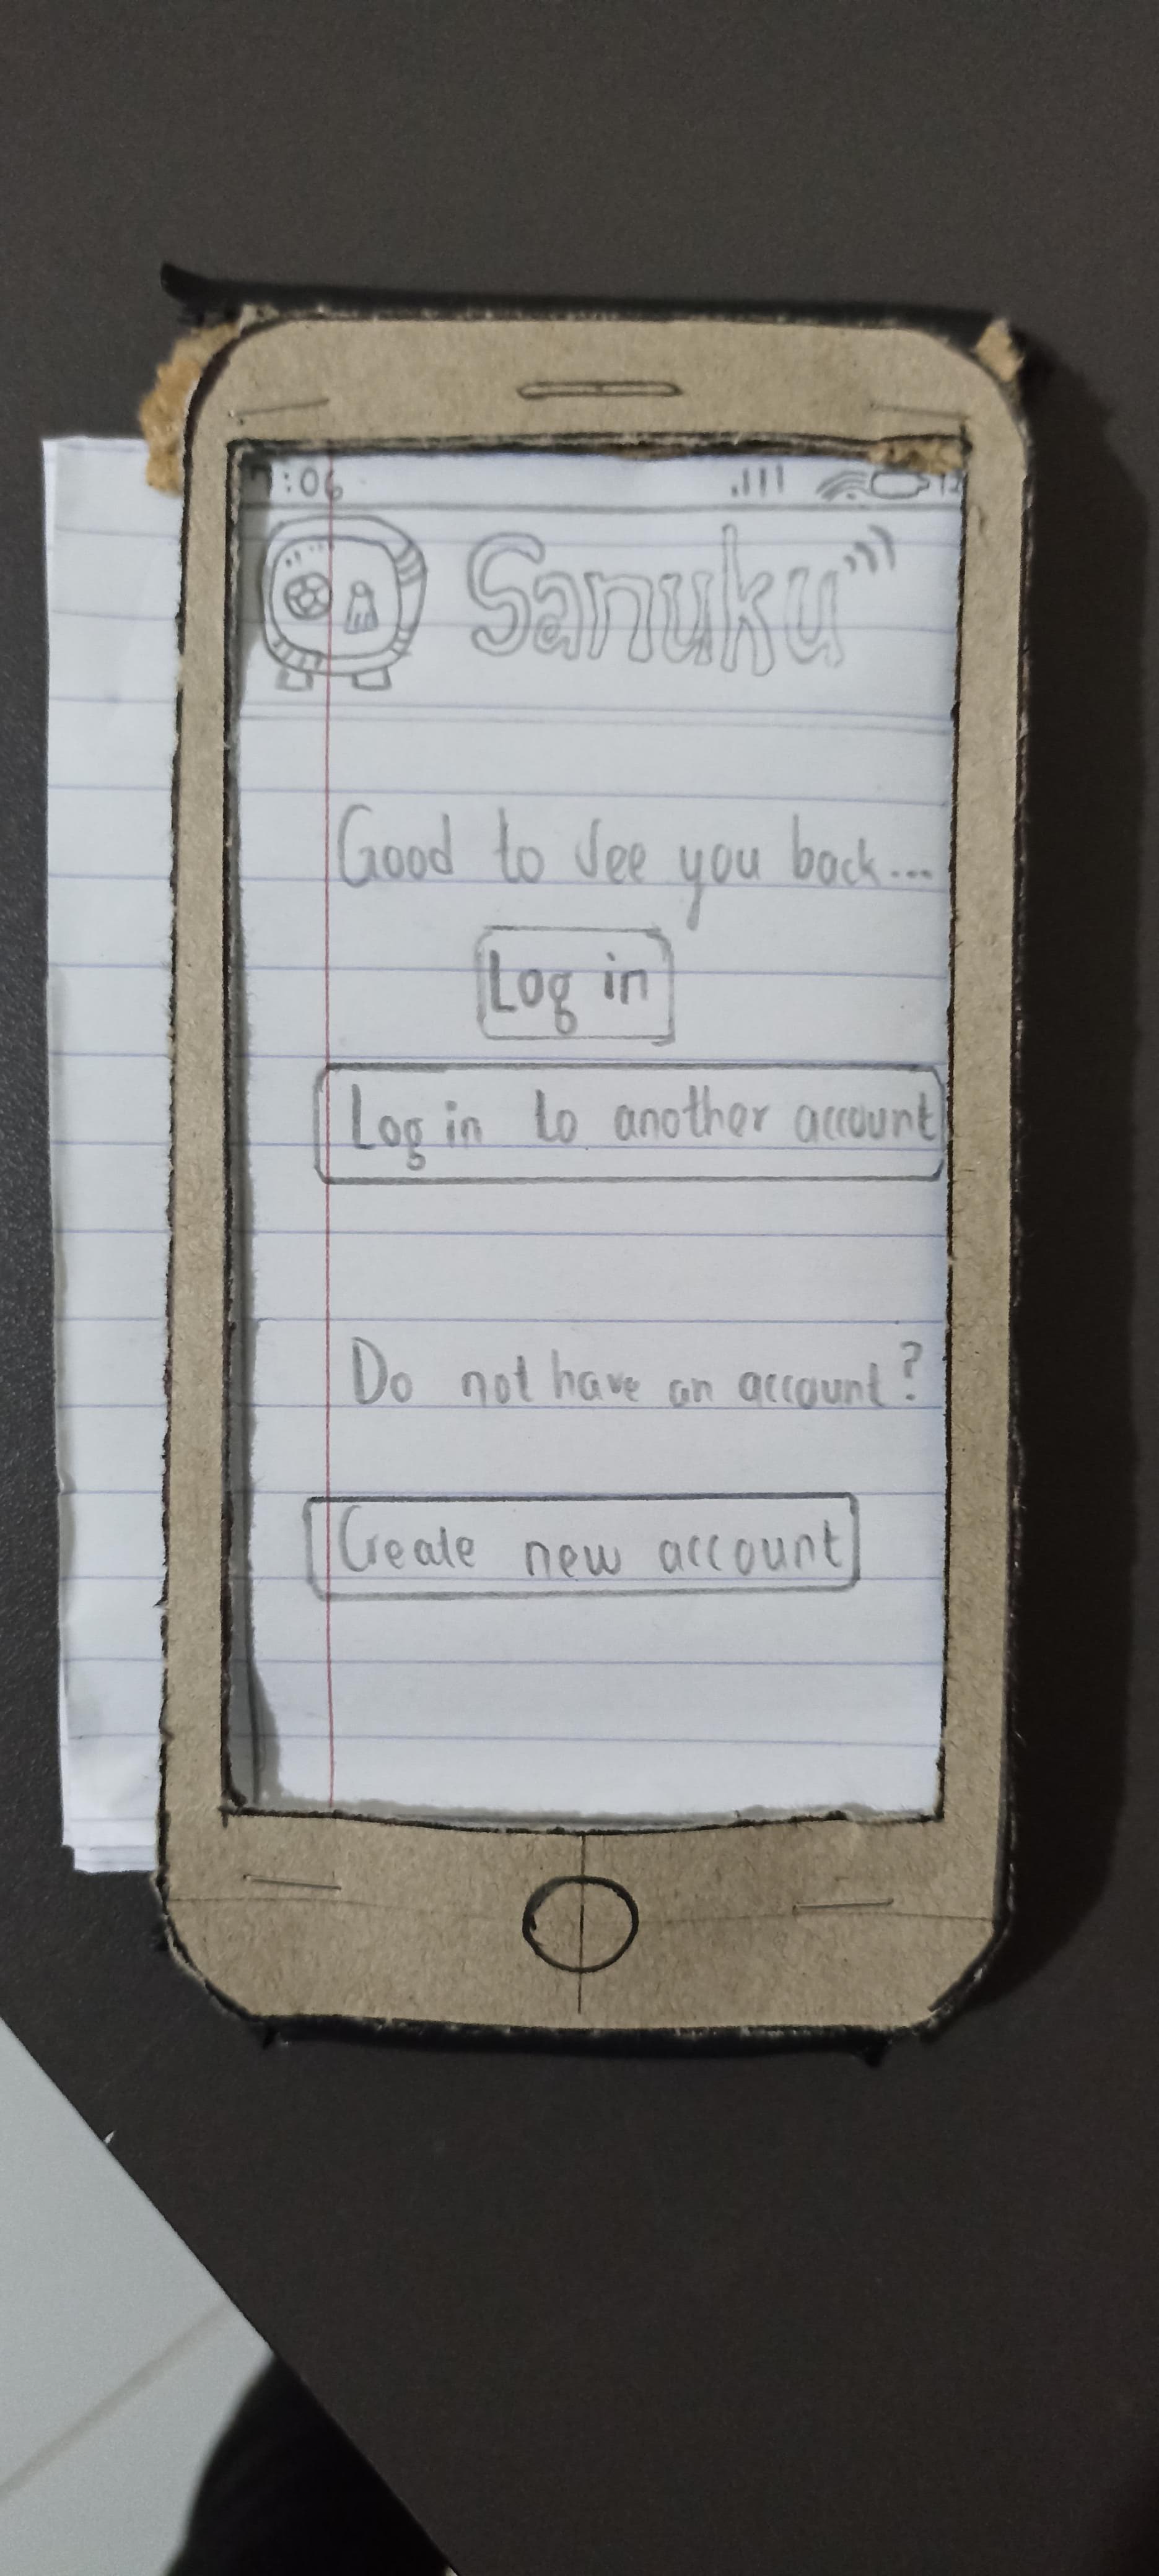 7:06 12
Sanuku
Good to see you back...
Log in
Log in to another account
Do not have an account?
Create new account